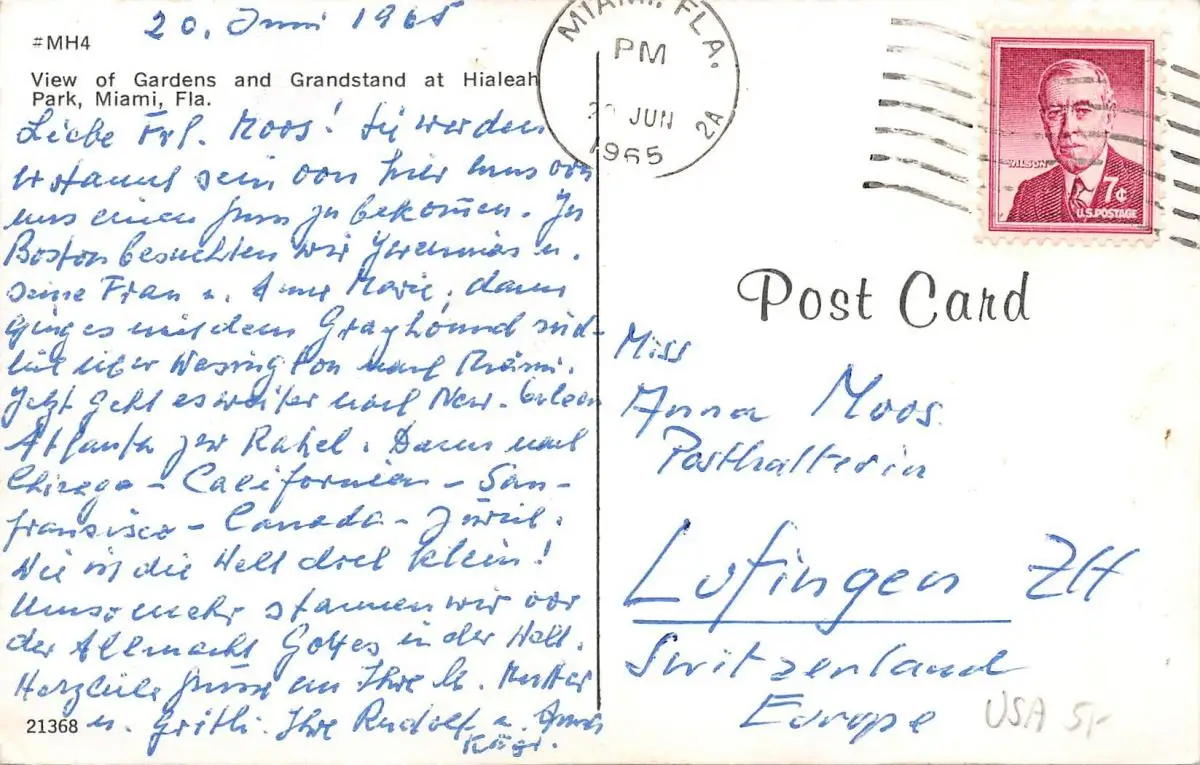 20. Juni 1965
#MH4
View of Gardens and Grandstand at Hialeah
Park, Miami, Fla.
Liebe Frl. Moos! Sie werden
erstaunt sein von hier aus von
uns einen Gruss zu bekommen. In
Boston besuchten wir Jeremias u.
seine Frau u. Anne Marie, dann
ging es mit dem Grayhound süd-
lich über Wasington nach Miami.
Jetzt geht es weiter nach New-
Atlanta zur Rahel. Dann nach
Chicago - Californien - San-
fransisco - Canada - Zürich.
Wie ist die Welt doch klein!
Umso mehr staunen wir vor
der Allmacht Gottes in der Welt.
Herzliche Grüsse an Ihre lb. Mutter
u. Gritli. Ihre Rudolf u. Anna
Kägi.
21368
MIAMI, FLA.
PM
JUN
2A
1965
WILSON
7¢
U.S. POSTAGE
Post Card
Miss
Anna Moos.
Posthalterin
Lufingen ZH
Switzerland
Europe
USA 5,-